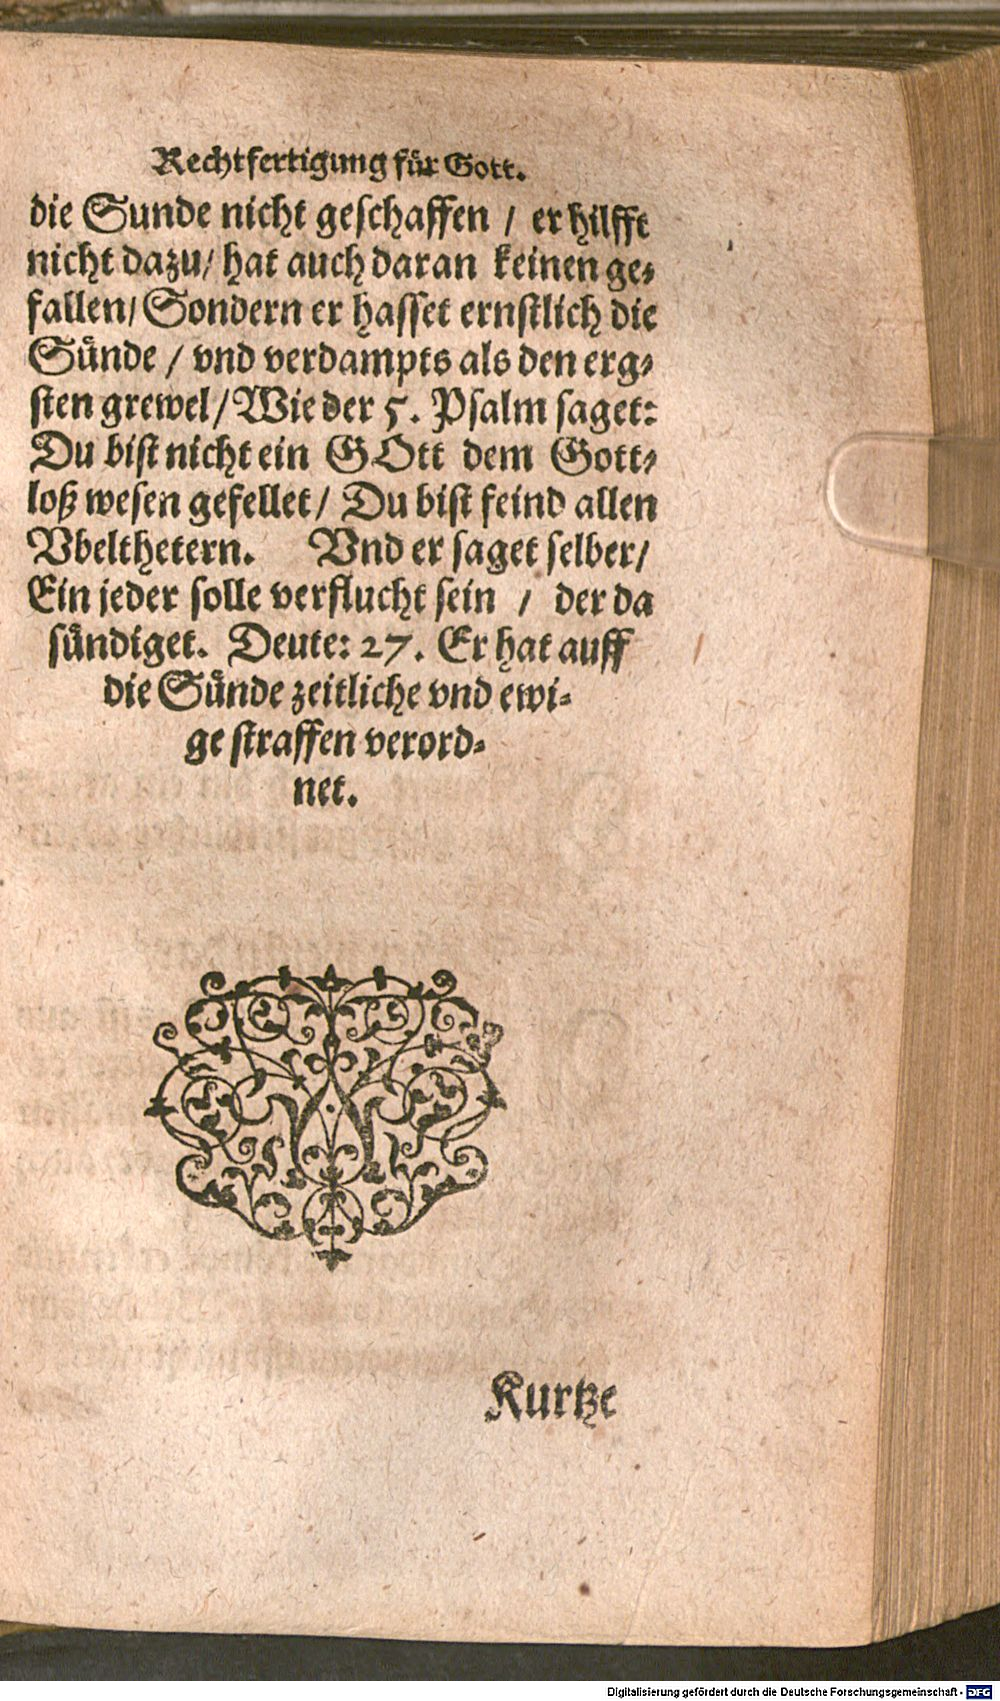 Rechtfertigung für Gott.
die Sunde nicht geschaffen / er hilfft
nicht dazu / hat auch daran keinen ge⸗
fallen / Sondern er hasset ernstlich die
Sünde / vnd verdampts als den erg⸗
sten grewel / Wie der 5. Psalm saget:
Du bist nicht ein GOtt dem Gott⸗
loß wesen gefellet / Du bist feind allen
Vbelthetern. Vnd er saget selber /
Ein jeder solle verflucht sein / der da
sündiget. Deute: 27. Er hat auff
die Sünde zeitliche vnd ewi⸗
ge straffen verord⸗
net.
Kurtze
Digitalisierung gefördert durch die Deutsche Forschungsgemeinschaft - DFG